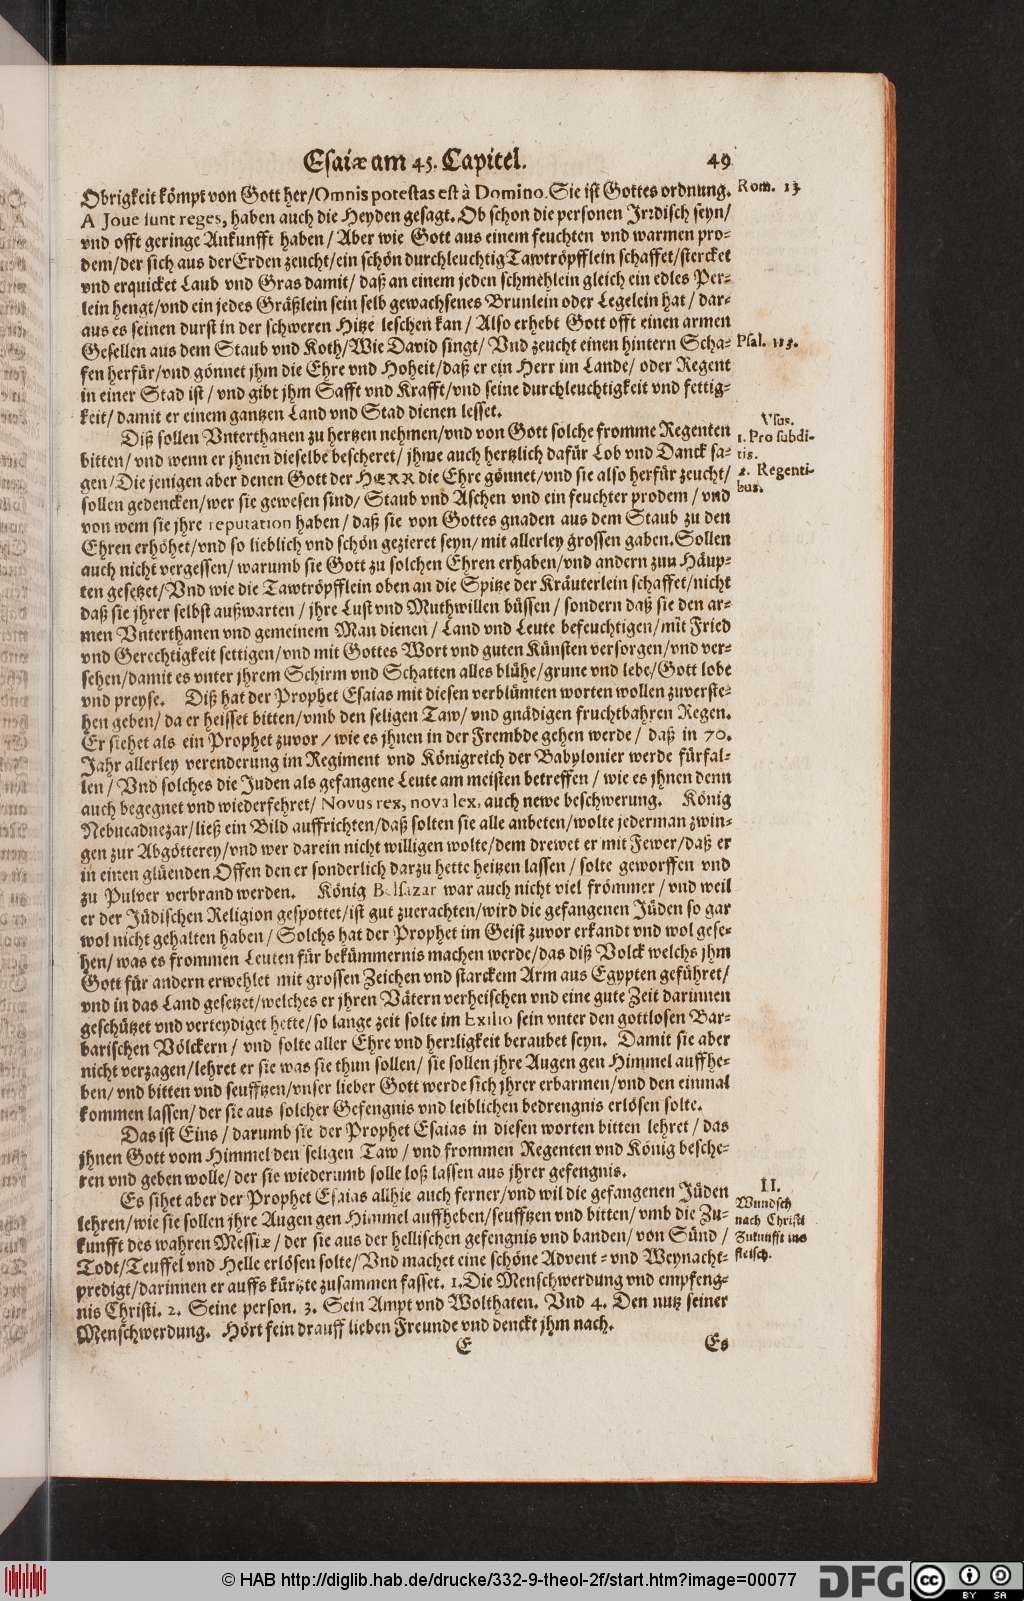 Esaiæ am 45. Capitel. 49
Obrigkeit kömpt von Gott her/Omnis potestas est à Domino. Sie ist Gottes ordnung. Rom. 13
A Joue sunt reges, haben auch die Heyden gesagt. Ob schon die personen Irrdisch seyn/
vnd offt geringe Ankunfft haben/ Aber wie Gott aus einem feuchten vnd warmen pro-
dem/der sich aus der Erden zeucht/ein schön durchleuchtig Tawtröpfflein schaffet/stercket
vnd erquicket Laub vnd Gras damit/ daß an einem jeden schmehlein gleich ein edles Per-
lein hengt/vnd ein jedes Gräßlein sein selb gewachsenes Brunlein oder Legelein hat/ dar-
aus es seinen durst in der schweren Hitze leschen kan/ Also erhebt Gott offt einen armen
Gesellen aus dem Staub vnd Koth/Wie David singt/ Vnd zeucht einen hintern Scha- Psal. 113.
fen herfür/vnd gönnet jhm die Ehre vnd Hoheit/daß er ein Herr im Lande/ oder Regent
in einer Stad ist/ vnd gibt jhm Safft vnd Krafft/vnd seine durchleuchtigkeit vnd fettig-
keit/ damit er einem gantzen Land vnd Stad dienen lesset.
Vsus.
Diß sollen Vnterthanen zu hertzen nehmen/vnd von Gott solche fromme Regenten 1. Pro subdi-
bitten/ vnd wenn er jhnen dieselbe bescheret/ jhme auch hertzlich dafür Lob vnd Danck sa- tis.
gen/Die jenigen aber denen Gott der HERR die Ehre gönnet/vnd sie also herfür zeucht/ 2. Regenti-
sollen gedencken/wer sie gewesen sind/ Staub vnd Aschen vnd ein feuchter prodem/ vnd bus.
von wem sie jhre reputation haben/ daß sie von Gottes gnaden aus dem Staub zu den
Ehren erhöhet/vnd so lieblich vnd schön gezieret seyn/ mit allerley grossen gaben. Sollen
auch nicht vergessen/ warumb sie Gott zu solchen Ehren erhaben/vnd andern zum Häup-
ten gesetzet/Vnd wie die Tawtröpfflein oben an die Spitze der Kräuterlein schaffet/nicht
daß sie jhrer selbst außwarten/ jhre Lust vnd Muthwillen büssen/ sondern daß sie den ar-
men Vnterthanen vnd gemeinem Man dienen/ Land vnd Leute befeuchtigen/mit Fried
vnd Gerechtigkeit settigen/vnd mit Gottes Wort vnd guten Künsten versorgen/vnd ver-
sehen/damit es vnter jhrem Schirm vnd Schatten alles blühe/grune vnd lebe/Gott lobe
vnd preyse. Diß hat der Prophet Esaias mit diesen verblümten worten wollen zuverste-
hen geben/ da er heisset bitten/ vmb den seligen Taw/ vnd gnädigen fruchtbahren Regen.
Er siehet als ein Prophet zuvor/ wie es jhnen in der Frembde gehen werde/ daß in 70.
Jahr allerley verenderung im Regiment vnd Königreich der Babylonier werde fürfal-
len/ Vnd solches die Juden als gefangene Leute am meisten betreffen/ wie es jhnen denn
auch begegnet vnd wiederfehret/ Novus rex, nova lex, auch newe beschwerung. König
Nebucadnezar/ließ ein Bild auffrichten/daß solten sie alle anbeten/wolte jederman zwin-
gen zur Abgötterey/vnd wer darein nicht willigen wolte/dem drewet er mit Fewer/daß er
in einen glüenden Offen den er sonderlich darzu hette heitzen lassen/ solte geworffen vnd
zu Pulver verbrand werden. König Belsazar war auch nicht viel frömmer/ vnd weil
er der Jüdischen Religion gespottet/ist gut zuerachten/wird die gefangenen Jüden so gar
wol nicht gehalten haben/ Solchs hat der Prophet im Geist zuvor erkandt vnd wol gese-
hen/ was es frommen Leuten für bekümmernis machen werde/das diß Volck welchs jhm
Gott für andern erwehlet mit grossen Zeichen vnd starckem Arm aus Egypten geführet/
vnd in das Land gesetzet/welches er jhren Vätern verheischen vnd eine gute Zeit darinnen
geschützet vnd verteydiget hette/so lange zeit solte im Exilio sein vnter den gottlosen Bar-
barischen Völckern/ vnd solte aller Ehre vnd herrligkeit beraubet seyn. Damit sie aber
nicht verzagen/lehret er sie was sie thun sollen/ sie sollen jhre Augen gen Himmel auffhe-
ben/ vnd bitten vnd seufftzen/vnser lieber Gott werde sich jhrer erbarmen/vnd den einmal
kommen lassen/ der sie aus solcher Gefengnis vnd leiblichen bedrengnis erlösen solte.
Das ist Eins/ darumb sie der Prophet Esaias in diesen worten bitten lehret/ das
jhnen Gott vom Himmel den seligen Taw/ vnd frommen Regenten vnd König besche-
ren vnd geben wolle/ der sie wiederumb solle loß lassen aus jhrer gefengnis.
Es sihet aber der Prophet Esaias allhie auch ferner/vnd wil die gefangenen Jüden II.
lehren/wie sie sollen jhre Augen gen Himmel auffheben/seufftzen vnd bitten/ vmb die Zu- Wundsch
kunfft des wahren Messiæ/ der sie aus der hellischen gefengnis vnd banden/ von Sünd/ nach Christi
Todt/Teuffel vnd Helle erlösen solte/Vnd machet eine schöne Advent- vnd Weynacht- Zukunfft ins
predigt/darinnen er auffs kürtzte zusammen fasset. 1. Die Menschwerdung vnd empfeng- fleisch.
nis Christi. 2. Seine person. 3. Sein Ampt vnd Wolthaten. Vnd 4. Den nutz seiner
Menschwerdung. Hört fein drauff lieben Freunde vnd denckt jhm nach.
E Es
© HAB http://diglib.hab.de/drucke/332-9-theol-2f/start.htm?image=00077 DFG cc BY SA